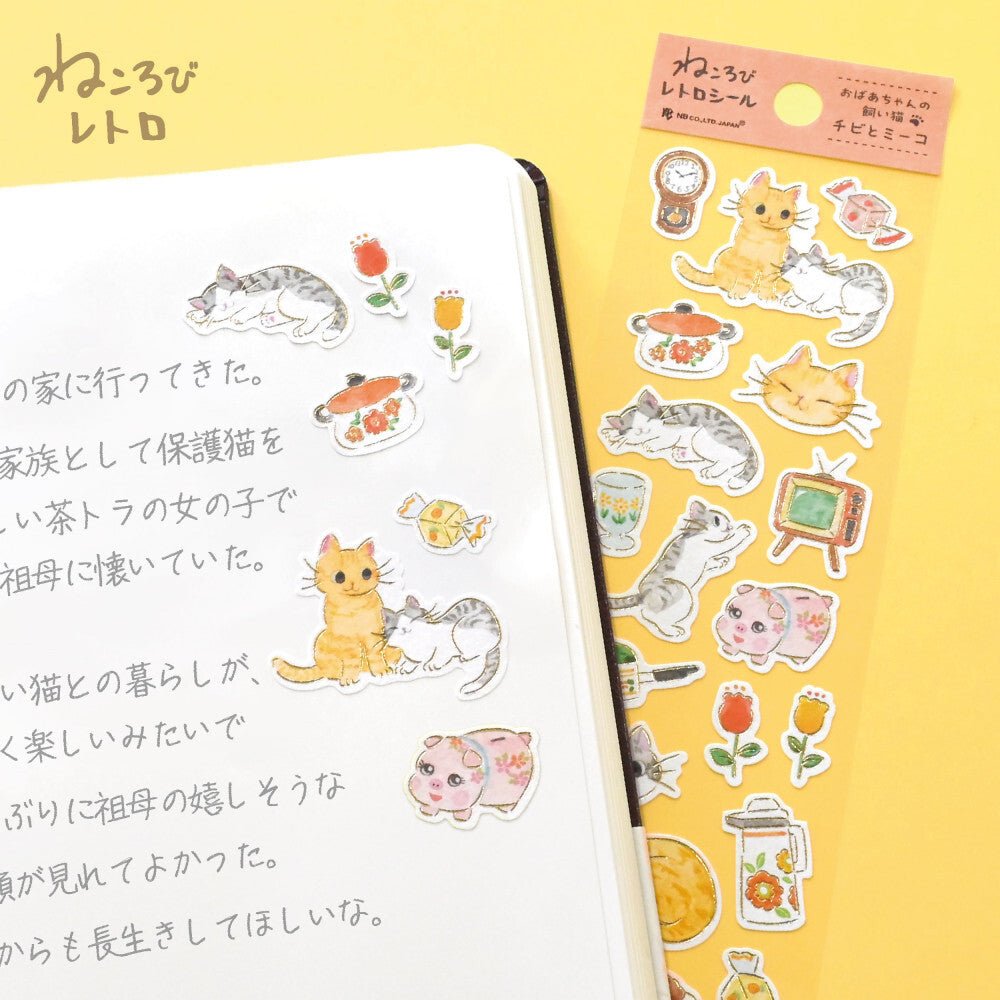 ねころび
レトロ
ねころび
レトロシール
NB CO.,LTD. JAPAN®
おばあちゃんの
飼い猫
チビとミーコ
の家に行ってきた。
家族として保護猫を
しい茶トラの女の子で
祖母に懐いていた。
い猫との暮らしが、
く楽しいみたいで
ぶりに祖母の嬉しそうな
顔が見れてよかった。
からも長生きしてほしいな。